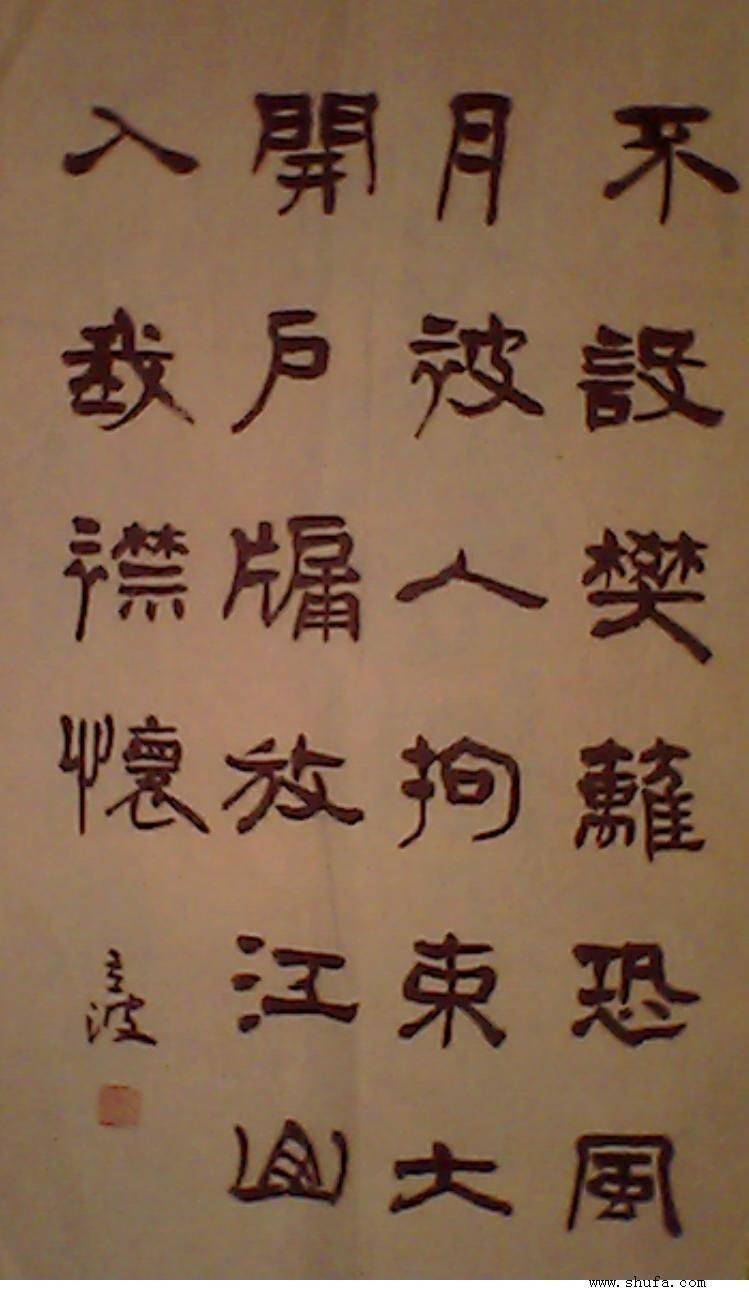 不設樊籬恐風
月被人拘束大
開戶牖放江山
入我襟懷
波
www.shufa.com